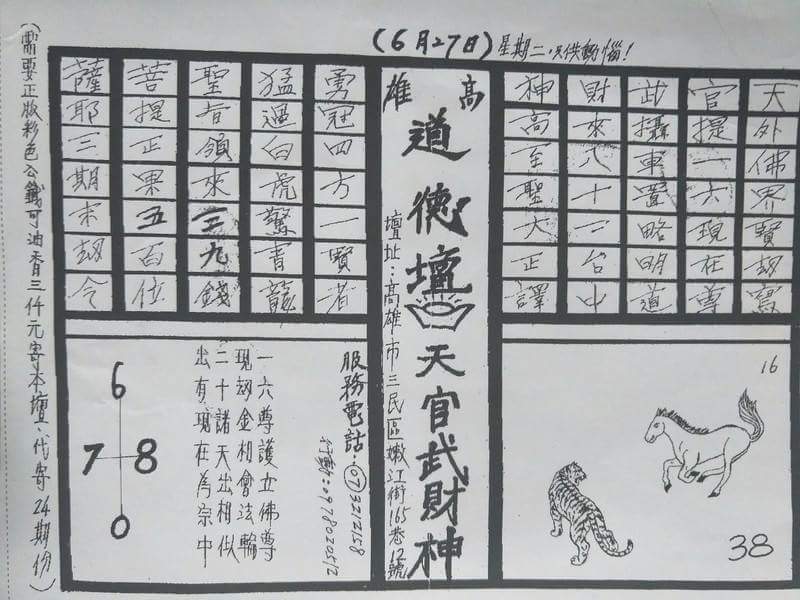 (6月27日)星期二.只供動惱!
天外佛界賢劫寫
官提一六現在尊
武攝車置略明道
財來八十二台中
神高至聖大正譯
16
38
高雄
道德壇
天官武財神
壇址:高雄市三民區嫩江街165巷12號
勇冠四方一賢者
猛過白虎驚青龍
聖者領來三九錢
菩提正果五百位
薩耶三期末劫令
服務電話:(07)3212158
行動:0978020512
一六尊護五佛尊
現劫金相會法輪
二十諸天出相似
出有現在為宗中
6
7 8
0
(需要正版彩色公籤可油香三仟元寄本壇.代寄24期份)